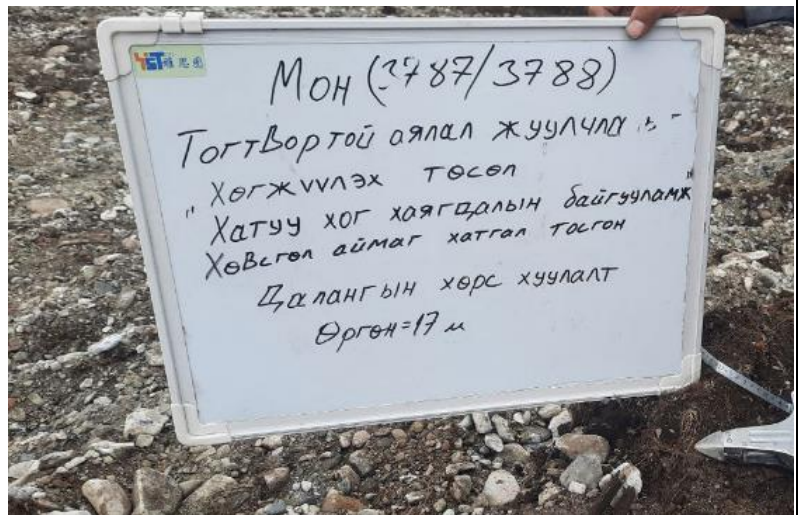 YCT雅思图
Мон (3787/3788)
Тогтвортой аялал жуулчла
Хөгжүүлэх төсөл
"Хатуу хог хаягдалын байгууламж"
Хөвсгөл аймаг хатгал тосгон
Далангын хөрс хуулалт
Өргөн=17 м